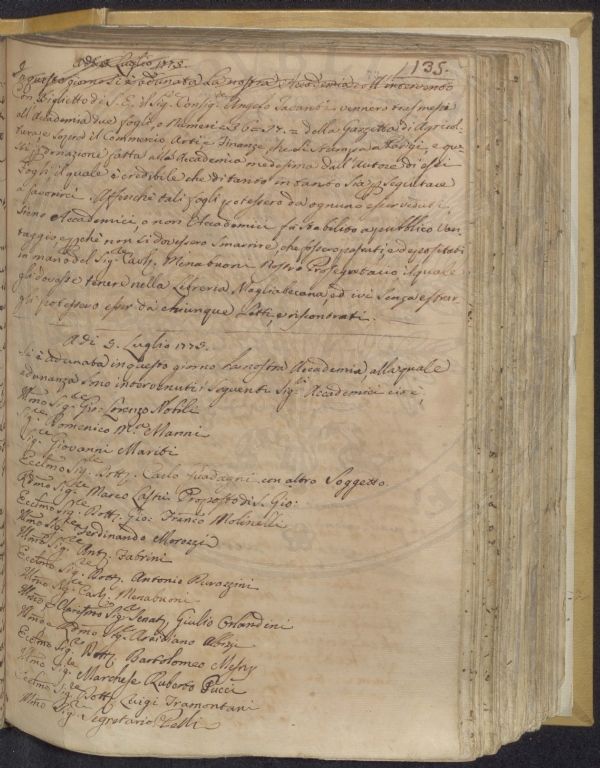 135.
Adì 5 Luglio 1775.
In questo giorno si è adunata la nostra Accademia, e si intervenendo
con Biglietto di S. E. il Sig.e Consig.e Angelo Tavanti vennero trasmessi
all'Accademia due fogli, o Numeri della Gazzetta di Agricol
tura e Sopra il Commercio, Arti, e Finanze, che si stampa a Parigi, e que
sti donazione fatta alla Accademia medesima dall'Autore di essi
Fogli il quale è credibile che di tanto in tanto sia p. seguitare
a favorirci. Affinchè tali fogli potessero da ognuno esser veduti,
sieno Accademici, o non Accademici fu stabilito a pubblico van-
taggio, e p.chè non si dovessero smarrire, che fossero passati, e depositati
in mano del Sig.e Carlo Menabuoni Nostro Prosegretario il quale
gli dovesse tenere nella Libreria Magliabecana, ed ivi senza estrar
gli potessero esser da chiunque Letti, e riscontrati.
Adì 5. Luglio 1775.
Si è adunata in questo giorno la nostra Accademia, alla quale
adunanza sono intervenuti i seguenti Sig.i Accademici cioè,
Illmo Sig.e Gio: Lorenzo Nobili
Sig.e Domenico M.a Manni
Sig.e Giovanni Mariti
Eccllmo Sig.e Dott. Carlo Guadagni con altro Soggetto
Rdmo Sig.e Marco Lastri Proposto di S. Gio:
Eccllmo Sig.e Dott. Gio: Franco Molinelli
Illmo Sig.e Ferdinando Morozzi
Illmo Sig.e Ant. Fabrini
Eccllmo Sig.e Dott. Antonio Ravazzini
Illmo Sig.e Carlo Menabuoni
Illmo e Clarissmo Sig.e Senat. Giulio Orlandini
Illmo e Rdmo Sig.e Albizi
Eccllmo Sig.e Dott. Bartolomeo Mesny
Illmo Sig.e Marchese Ruberto Pucci
Eccllmo Sig.e Dott. Luigi Tramontani
Illmo Sig.e Segretario Pelli